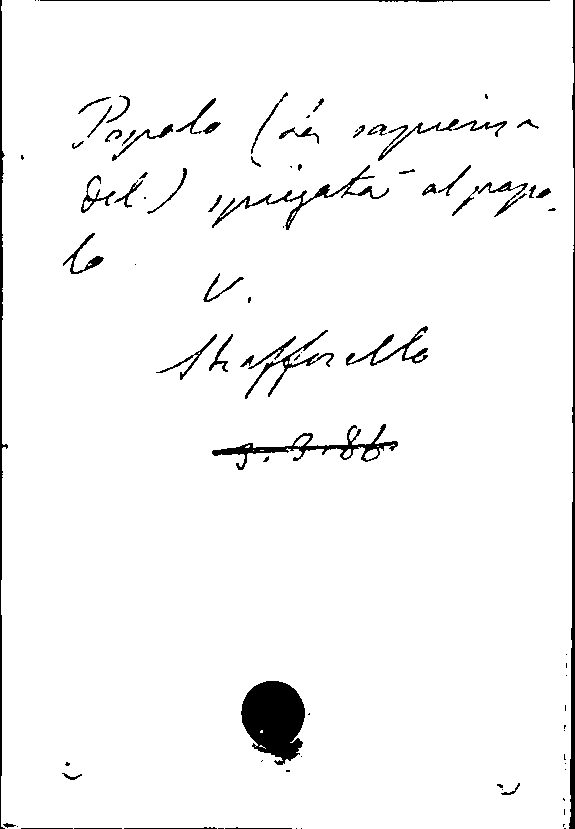 Popolo (la sapienza
del) spiegata al popo-
lo
V.
Strafforello
3.3.86